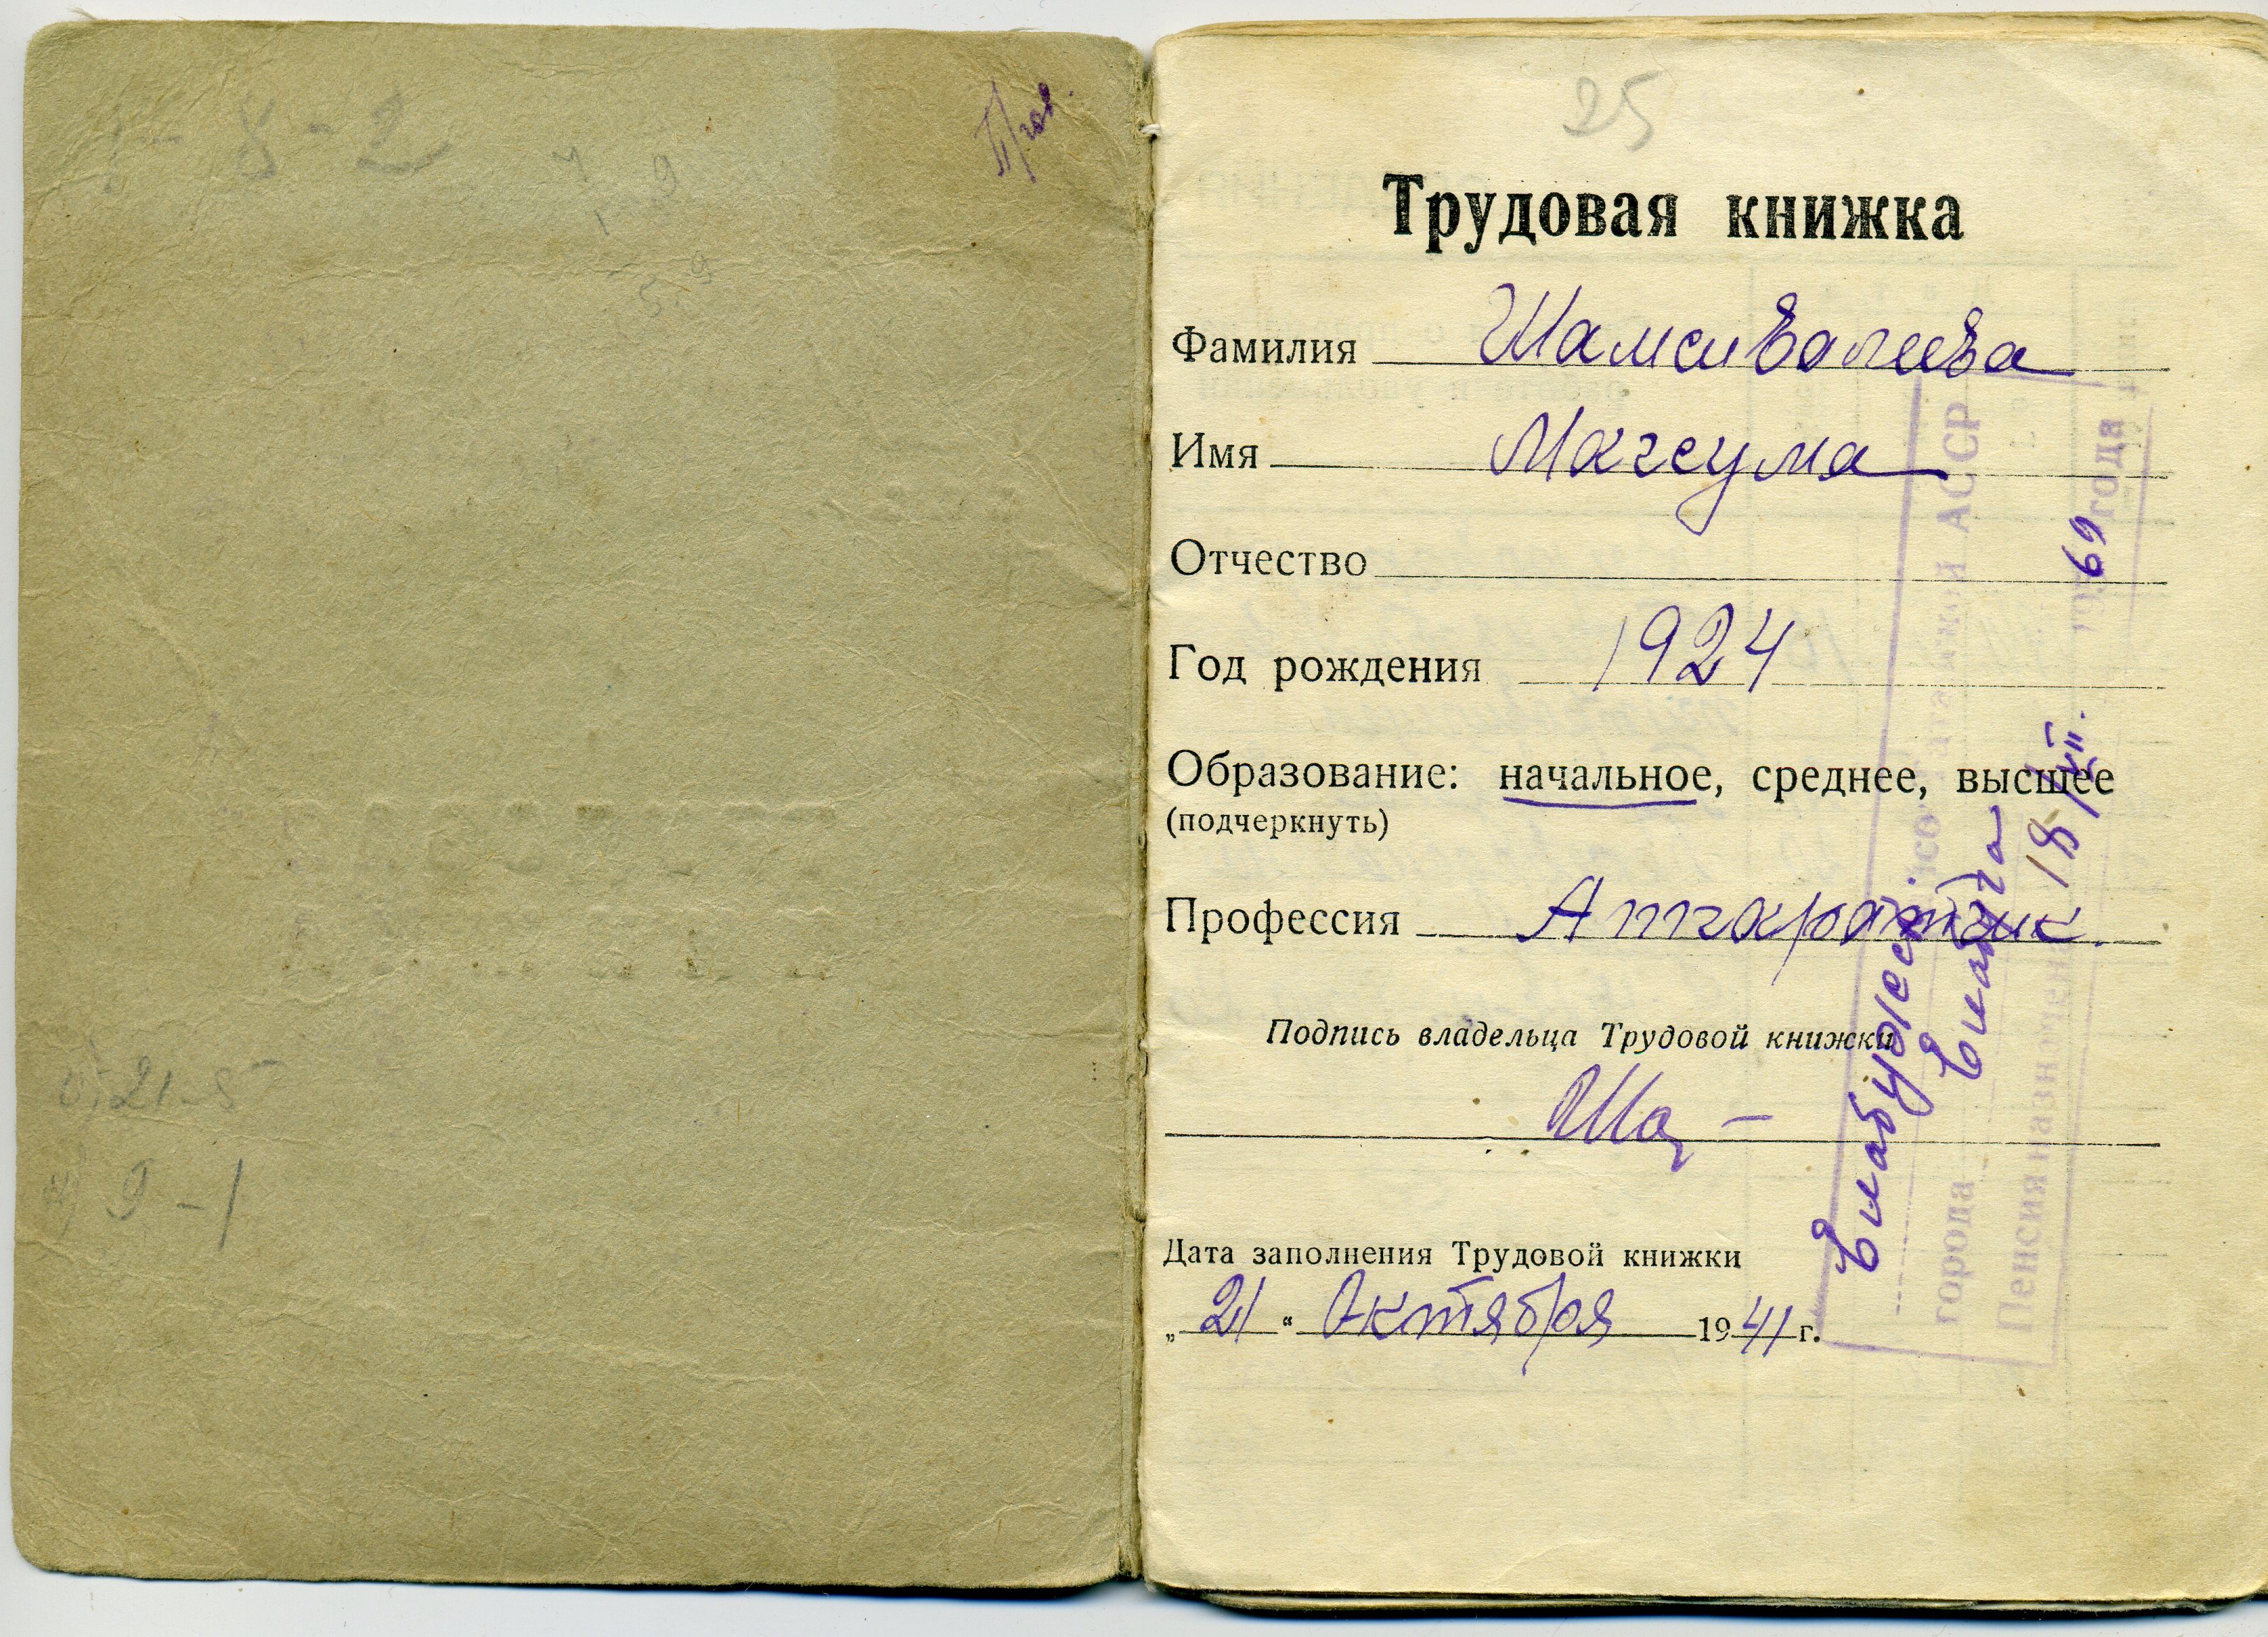 1-8-2
25
Трудовая книжка
Фамилия Шамсивалиева
Имя Магсума
Отчество
Год рождения 1924
Образование: начальное, среднее, высшее
(подчеркнуть)
Профессия
Подпись владельца Трудовой книжки
Ша
Дата заполнения Трудовой книжки
„21“ Октября 1941 г.
Елабужск.
АССР
города Елабуга
Пенсия назначена 18/VII. 1969 года
5,9
9-1